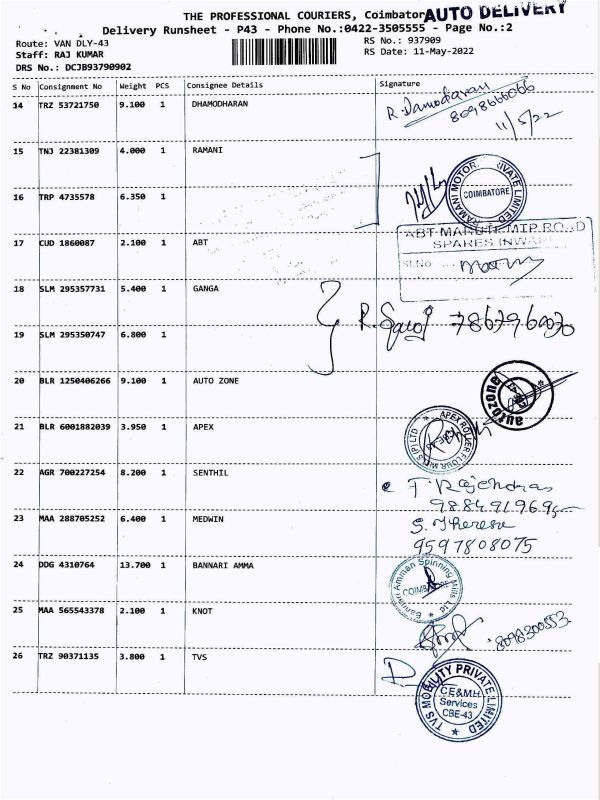 THE PROFESSIONAL COURIERS, Coimbator AUTO DELIVERY
Delivery Runsheet - P43 - Phone No.:0422-3505555 - Page No.:2
Route: VAN DLY-43
RS No.: 937909
Staff: RAJ KUMAR
RS Date: 11-May-2022
DRS No.: DCJB93790902
S No Consignment No Weight PCS Consignee Details Signature
14 TRZ 53721750 9.100 1 DHAMODHARAN
R. Damodaran
8098666066
11/5/22
15 TNJ 22381309 4.000 1 RAMANI
RAMANI MOTORS PRIVATE LIMITED
COIMBATORE
16 TRP 4735578 6.350 1
17 CUD 1860087 2.100 1 ABT
ABT MARUTI MTP ROAD
SPARES INWARD
Sl.No
18 SLM 295357731 5.400 1 GANGA
19 SLM 295350747 6.800 1
R. Saroj 7867960030
20 BLR 1250406266 9.100 1 AUTO ZONE
autozone
21 BLR 6001882039 3.950 1 APEX
APEX ROLLER FLOUR MILLS (P) LTD
22 AGR 700227254 8.200 1 SENTHIL
T Rajendran
23 MAA 288705252 6.400 1 MEDWIN
S. Therese
9597808075
24 DDG 4310764 13.700 1 BANNARI AMMA
Bannari Amman Spinning Mills Ltd
COIMBATORE
25 MAA 565543378 2.100 1 KNOT
8098300553
26 TRZ 90371135 3.800 1 TVS
TVS MOBILITY PRIVATE LIMITED
CE&MH
Services
CBE-43